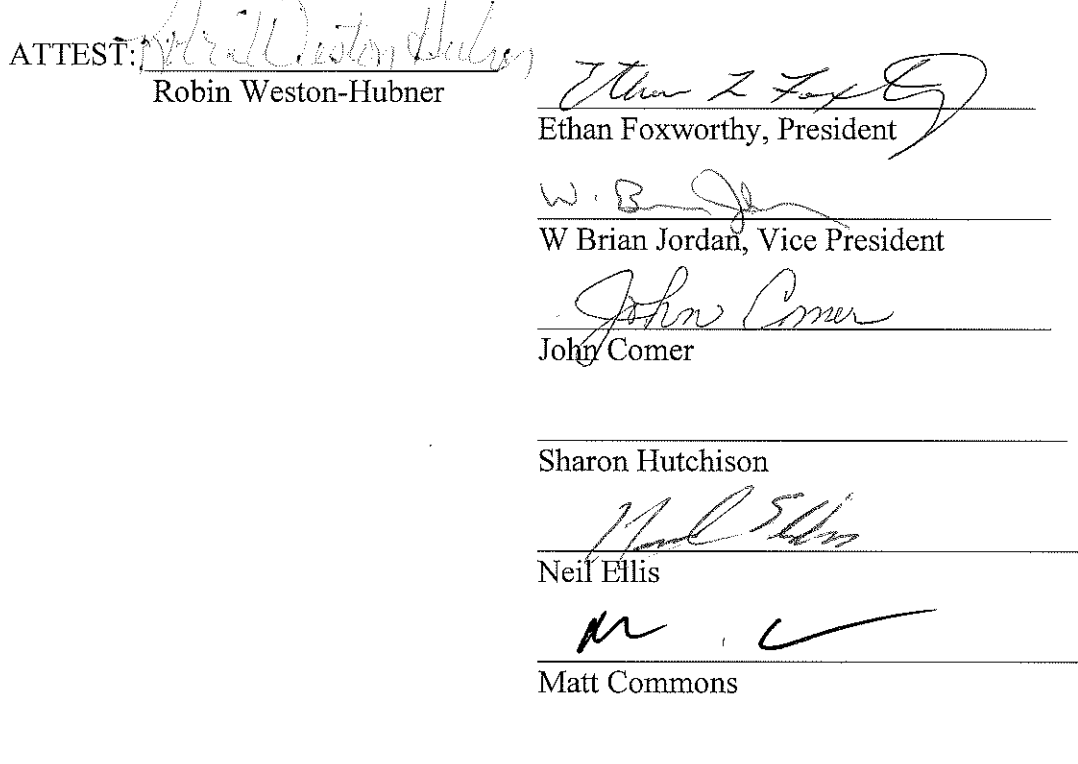 ATTEST: Robin Weston Hubner
Robin Weston-Hubner
Ethan L Foxworthy
Ethan Foxworthy, President
W. Brian Jordan
W Brian Jordan, Vice President
John Comer
John Comer
Sharon Hutchison
Neil Ellis
Neil Ellis
Matt Commons